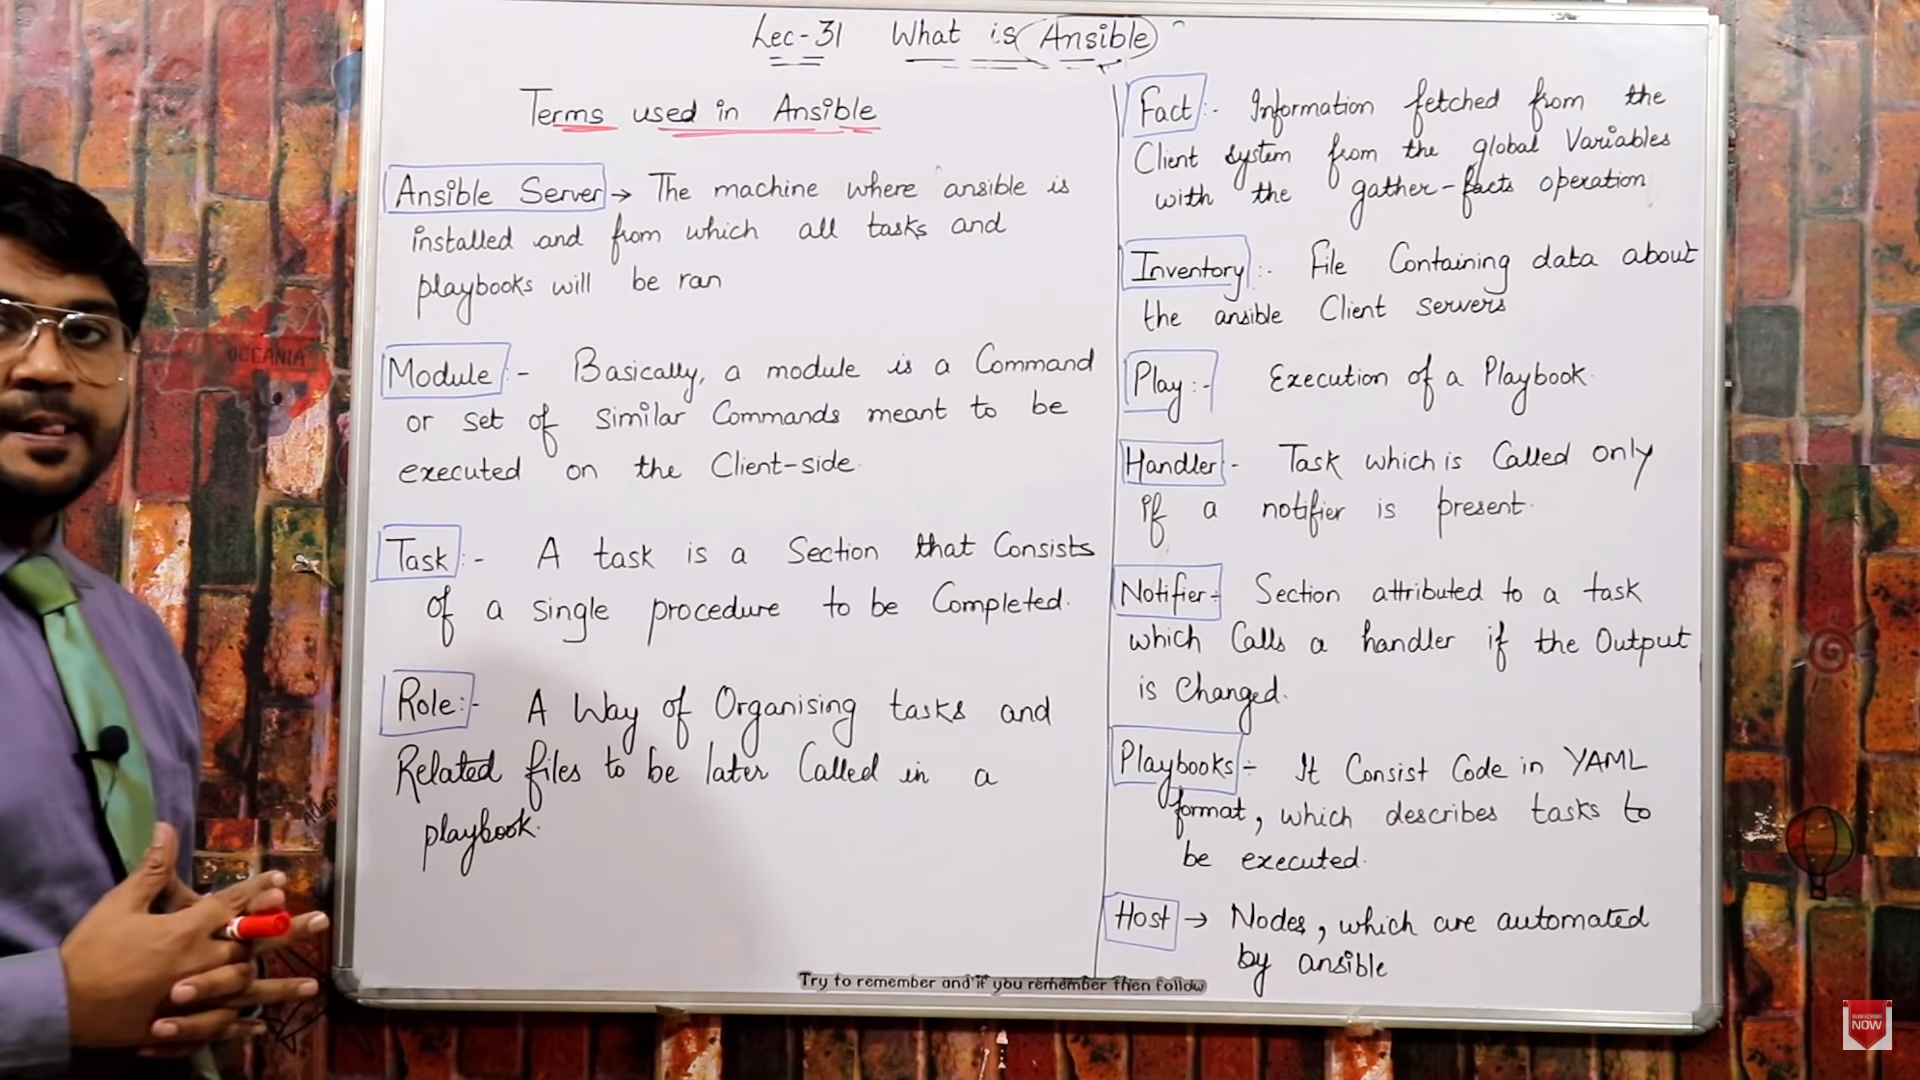 Lec-31 What is Ansible
Terms used in Ansible
Ansible Server → The machine where ansible is
installed and from which all tasks and
playbooks will be ran
Module :- Basically, a module is a Command
or set of similar Commands meant to be
executed on the Client-side.
Task :- A task is a Section that Consists
of a single procedure to be Completed.
Role:- A Way of Organising tasks and
Related files to be later Called in a
playbook.
Fact :- Information fetched from the
Client system from the global Variables
with the gather-facts operation
Inventory :- File Containing data about
the ansible Client servers
Play :- Execution of a Playbook.
Handler :- Task which is Called only
if a notifier is present.
Notifier :- Section attributed to a task
which Calls a handler if the Output
is Changed.
Playbooks :- It Consist Code in YAML
format, which describes tasks to
be executed.
Host → Nodes, which are automated
by ansible
Try to remember and if you remember then follow
OCEANIA
SUBSCRIBE
NOW